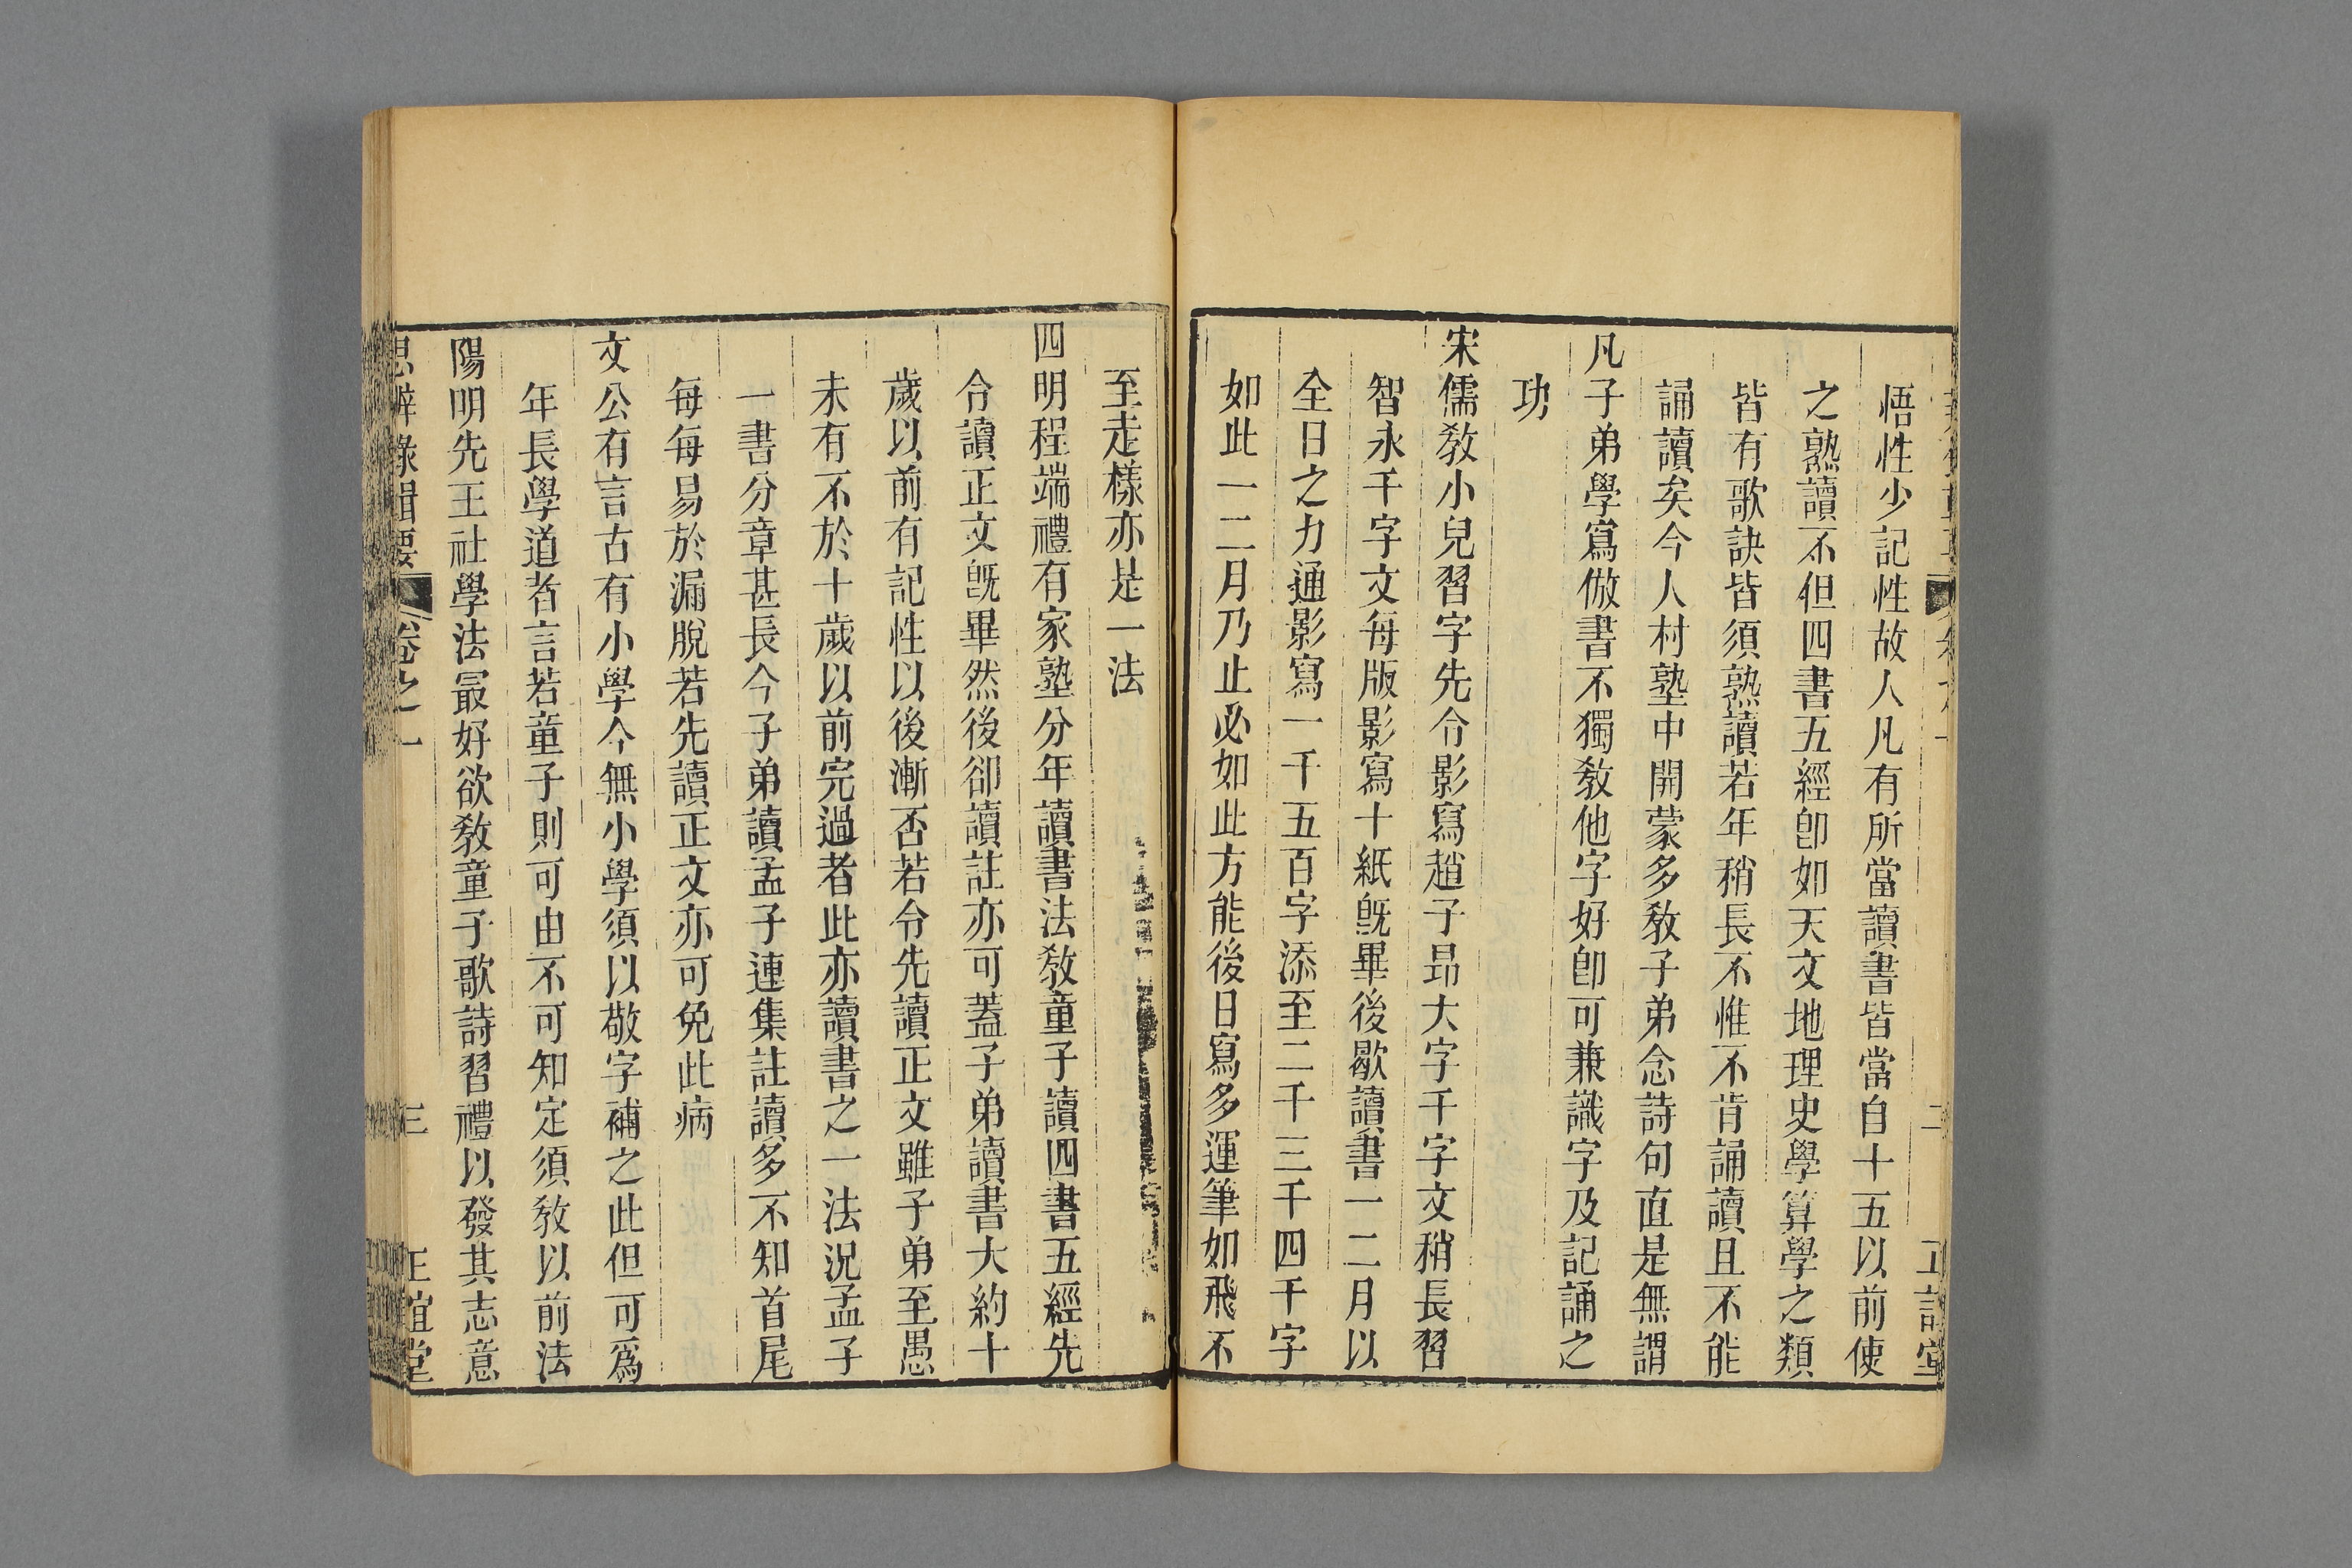 悟性少記性故人凡有所當讀書皆當自十五以前使
之熟讀不但四書五經卽如天文地理史學算學之類
皆有歌訣皆須熟讀若年稍長不惟不肯誦讀且不能
誦讀矣今人村塾中開蒙多敎子弟念詩句直是無謂
凡子弟學寫倣書不獨敎他字好卽可兼識字及記誦之
功
宋儒敎小兒習字先令影寫趙子昂大字千字文稍長習
智永千字文每版影寫十紙旣畢後歇讀書一二月以
全日之力通影寫一千五百字添至二千三千四千字
如此一二月乃止必如此方能後日寫多運筆如飛不
至走樣亦是一法
四明程端禮有家塾分年讀書法敎童子讀四書五經先
令讀正文旣畢然後卻讀註亦可蓋子弟讀書大約十
歲以前有記性以後漸否若令先讀正文雖子弟至愚
未有不於十歲以前完過者此亦讀書之一法況孟子
一書分章甚長今子弟讀孟子連集註讀多不知首尾
每每易於漏脫若先讀正文亦可免此病
文公有言古有小學今無小學須以敬字補之此但可爲
年長學道者言若童子則可由不可知定須敎以前法
陽明先王社學法最好欲敎童子歌詩習禮以發其志意
思辨錄輯要
卷之一
三
正誼堂